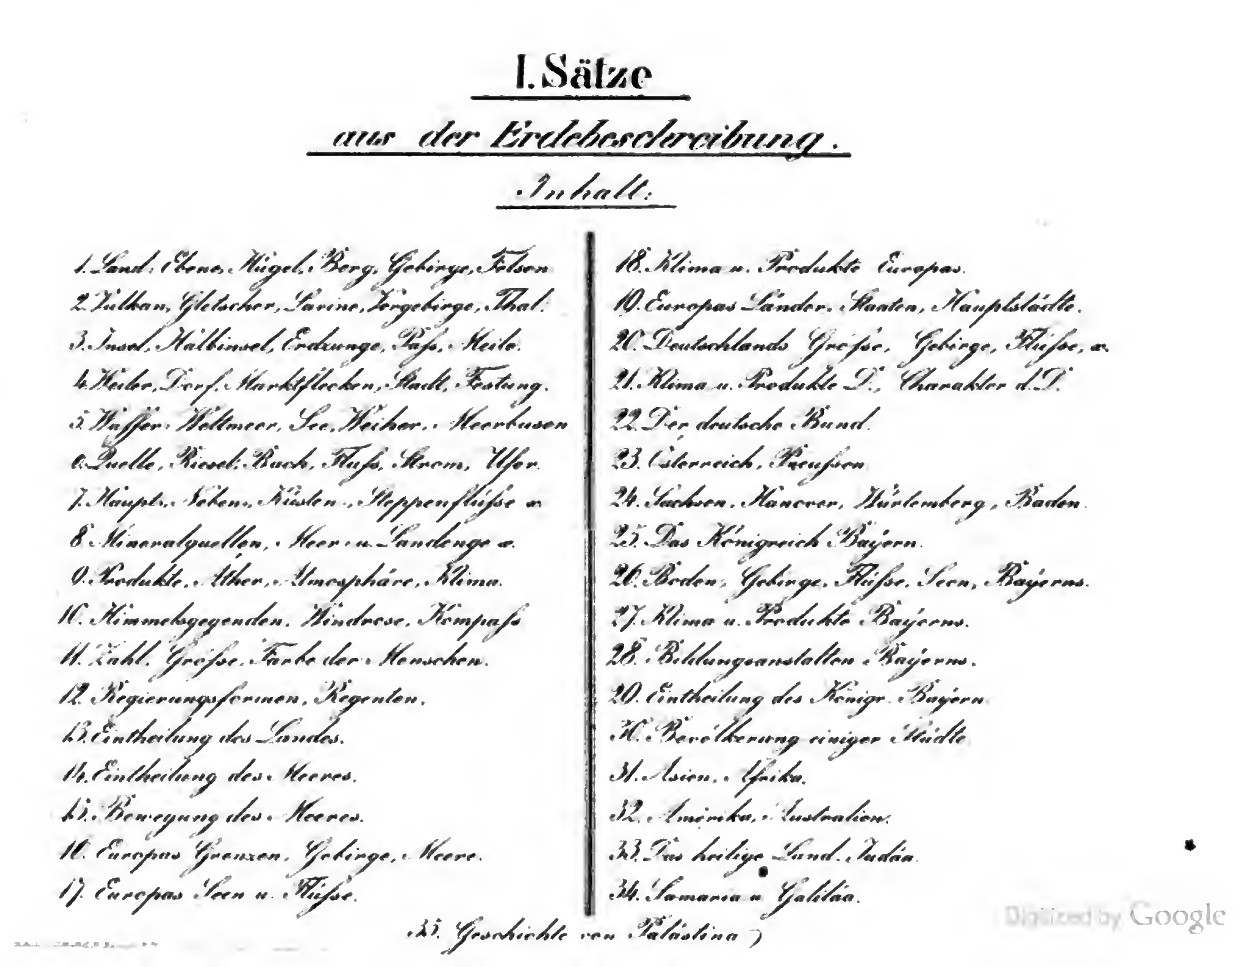 I. Sätze
aus der Erdebeschreibung.
Inhalt:
1. Land, Ebene, Hügel, Berg, Gebirge, Felsen
2. Vulkan, Gletscher, Lavine, Vorgebirge, Thal.
3. Insel, Halbinsel, Erdzunge, Paß, Meile.
4. Weiler, Dorf, Marktflecken, Stadt, Festung.
5. Waffer, Weltmeer, See, Weiher, Meerbusen
6. Quelle, Riesel, Bach, Fluß, Strom, Ufer.
7. Haupt-, Neben-, Küsten-, Steppenflüße x.
8. Mineralquellen, Meer- u. Landenge x.
9. Produkte, Äther, Atmosphäre, Klima.
10. Himmelsgegenden, Windrose, Kompaß
11. Zahl, Größe, Farbe der Menschen.
12. Regierungsformen, Regenten.
13. Eintheilung des Landes.
14. Eintheilung des Meeres.
15. Bewegung des Meeres.
16. Europas Grenzen, Gebirge, Meere.
17. Europas Seen u. Flüße.
18. Klima u. Produkte Europas.
19. Europas Länder, Staaten, Hauptstädte.
20. Deutschlands Größe, Gebirge, Flüße, x.
21. Klima u. Produkte D., Charakter d. D.
22. Der deutsche Bund.
23. Österreich, Preußen
24. Sachsen, Hanover, Würtemberg, Baden.
25. Das Königreich Bayern.
26. Boden, Gebirge, Flüße, Seen, Bayerns.
27. Klima u. Produkte Bayerns.
28. Bildungsanstalten Bayerns.
29. Eintheilung des Königr. Bayern
30. Bevölkerung einiger Städte
31. Asien, Afrika.
32. Amerika, Australien.
33. Das heilige Land. Judäa.
34. Samaria u. Galiläa.
35. Geschichte von Palästina
Digitized by Google